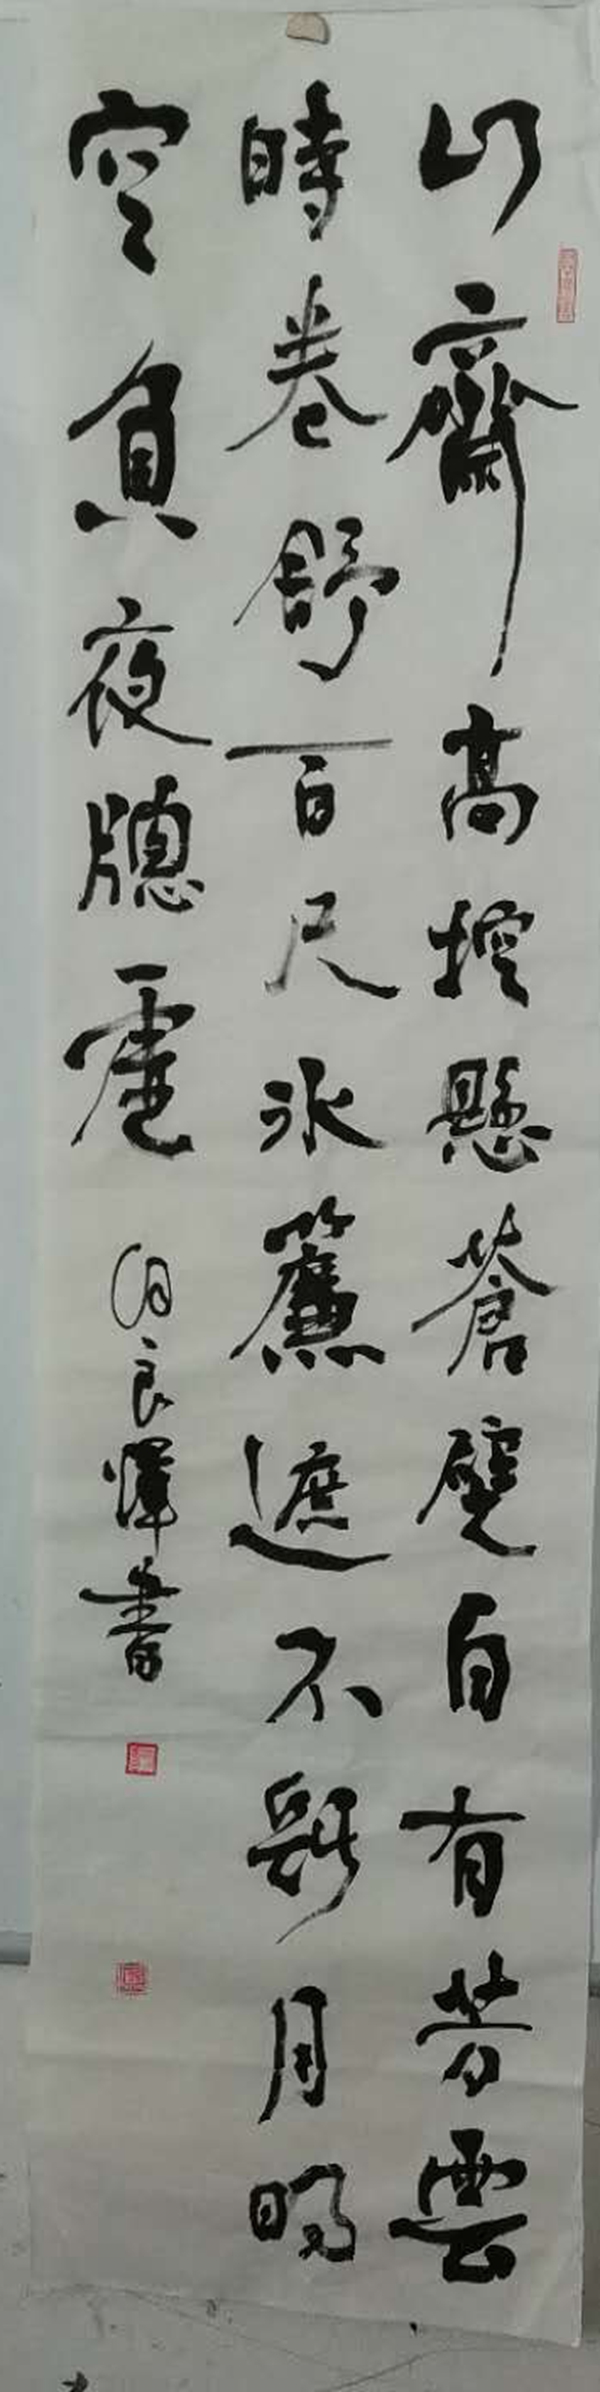 山齋高控懸蒼壁自有芳雲
時卷舒百尺冰簾遮不斷月明
空負夜牕虛
良輝書